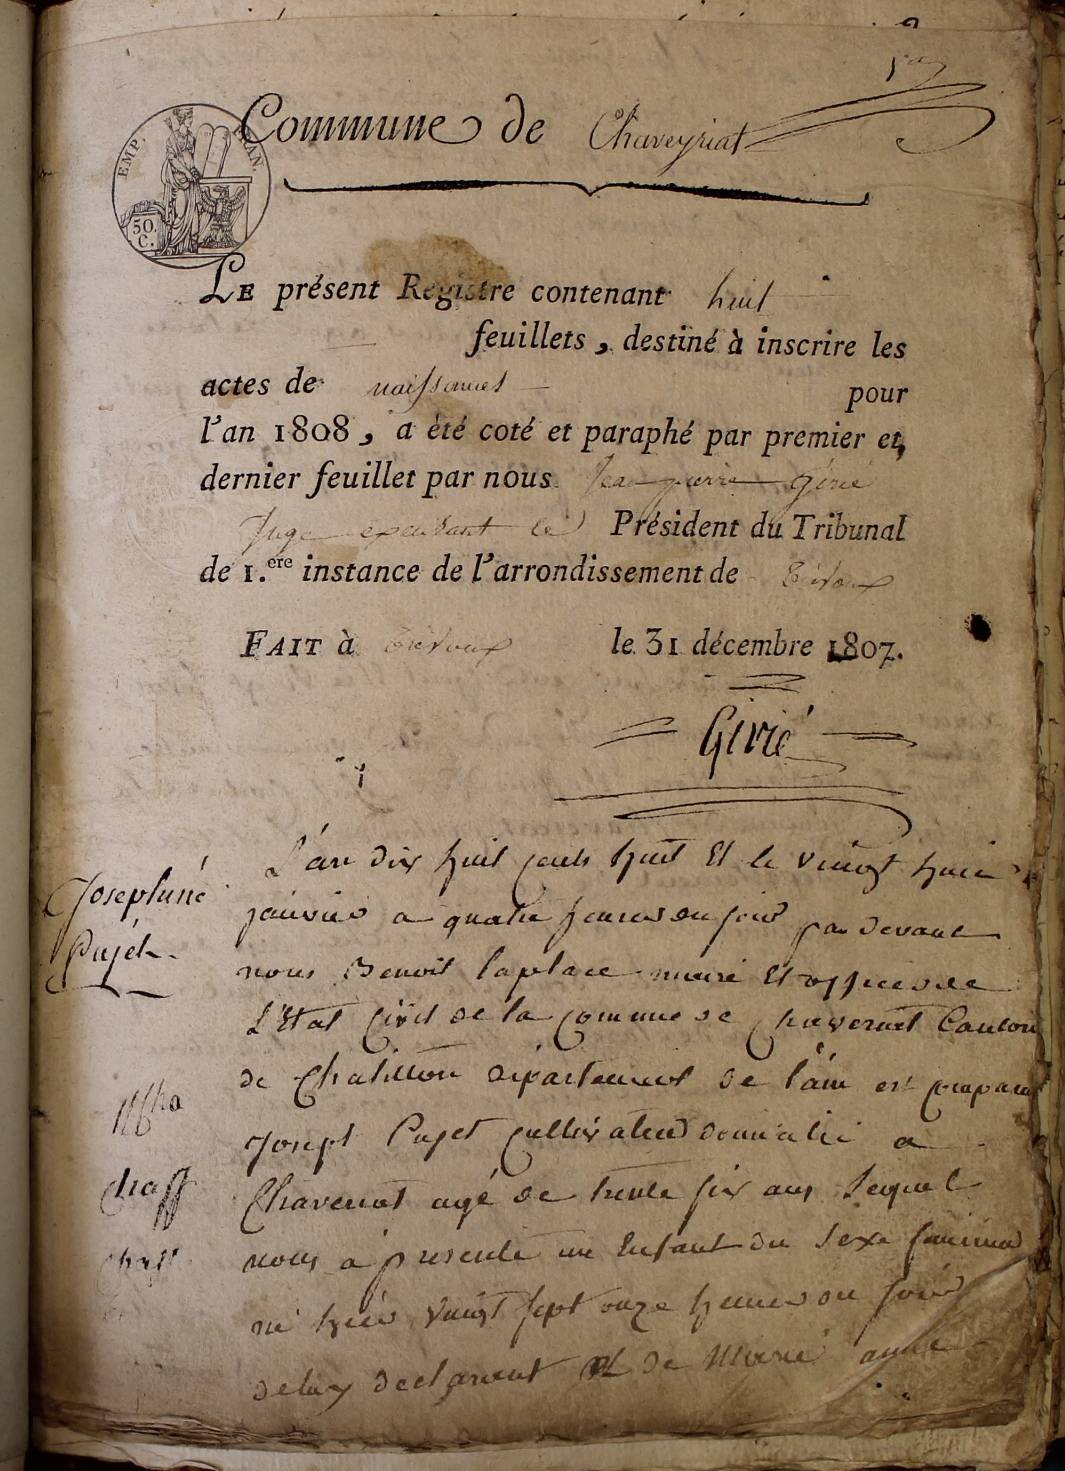 1er
Commune de Chaveyriat
EMP. FRAN.
50. C.
LE présent Registre contenant huit
feuillets, destiné à inscrire les
actes de naissances pour
l'an 1808, a été coté et paraphé par premier et
dernier feuillet par nous Jean pierre Girié
Juge exerçant le Président du Tribunal
de 1.ere instance de l'arrondissement de Trévoux
FAIT à Trévoux le 31 décembre 1807.
Girié
L'an dix huit cents huit Et le vingt huit
Josephine
janvier a quatre heures du soir par devant
Pujet
nous Benoit laplace maire Et officier de
L'Etat Civil de la Commune de Chaveriat Canton
de Chatillon département de l'ain est comparu
Joseph Pujet cultivateur domicilié a
Chaveriat agé de trente six ans Lequel
nous a présenté un Enfant du Sexe féminin
né hier vingt sept onze heures du soir
de luy déclarant Et de Marie anne